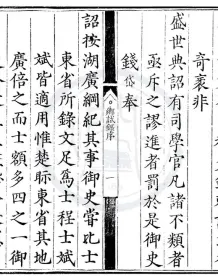 奇袤非
盛世典詔有司學官凡諸不類者
亟斥之謬進者罰於是御史
錢岱奉
鄉試錄序
一
詔按湖廣綱紀其事御史嘗比士
東省所錄文足爲士程士斌
斌皆適用惟楚眎東省其地
廣倍之而士額多四之一御